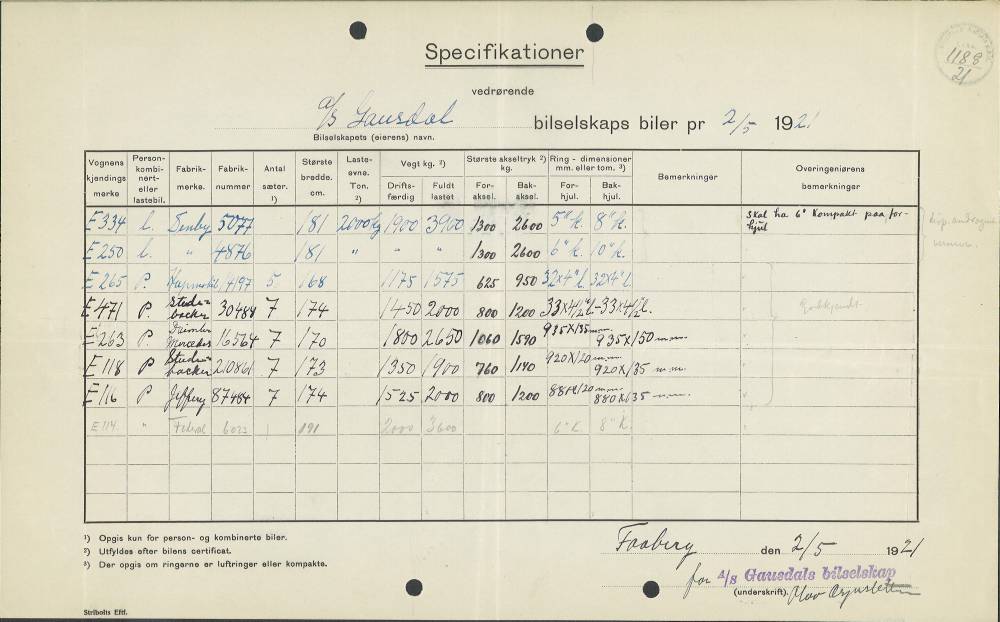 Specifikationer
1188
21
vedrørende
a/s Gausdal bilselskaps biler pr 2/5 1921
Bilselskapets (eierens) navn.
Vognens kjendings merke | Person- kombi- nert- eller lastebil. | Fabrik- merke. | Fabrik- nummer | Antal sæter. 1) | Største bredde. cm. | Laste- evne. Ton. 2) | Vegt kg. 2) Drifts- færdig | Fuldt lastet | Største akseltryk 2) kg. For- aksel. | Bak- aksel. | Ring - dimensioner mm. eller tom. 3) For- hjul. | Bak- hjul. | Bemerkninger | Overingeniørens bemerkninger
E 334 L. Denby 5077 181 2000 kg 1900 3900 1300 2600 5" k. 8" k. Skal ha 6" kompakt paa for- hjul
E 250 L. " 4876 181 " " " 1300 2600 6" k. 10" k.
E 265 P. Hupmobil 4197 5 168 1175 1575 625 950 32x4" l. 32x4" l.
E 471 P. Stude- backer 30484 7 174 1450 2000 800 1200 33x4 1/2" l - 33x4 1/2 l. Godkjendt.
E 263 P. Daimler Mercedes 16564 7 170 1800 2650 1060 1590 935x135 mm. 935x150 m.m.
E 118 P Stude- backer 210861 7 173 1350 1900 760 1140 920x120 m.m. 920x135 m.m.
E 116 P. Jeffery 87484 7 174 1525 2000 800 1200 880x120 m.m. 880x135 m.m.
E 114 " Federal 6022 191 2000 3600 6" K. 8" K.
1) Opgis kun for person- og kombinerte biler.
2) Utfyldes efter bilens certificat.
3) Der opgis om ringerne er luftringer eller kompakte.
Faaberg den 2/5 1921
for A/s Gausdals bilselskap
(underskrift).
Stribolts Eftf.